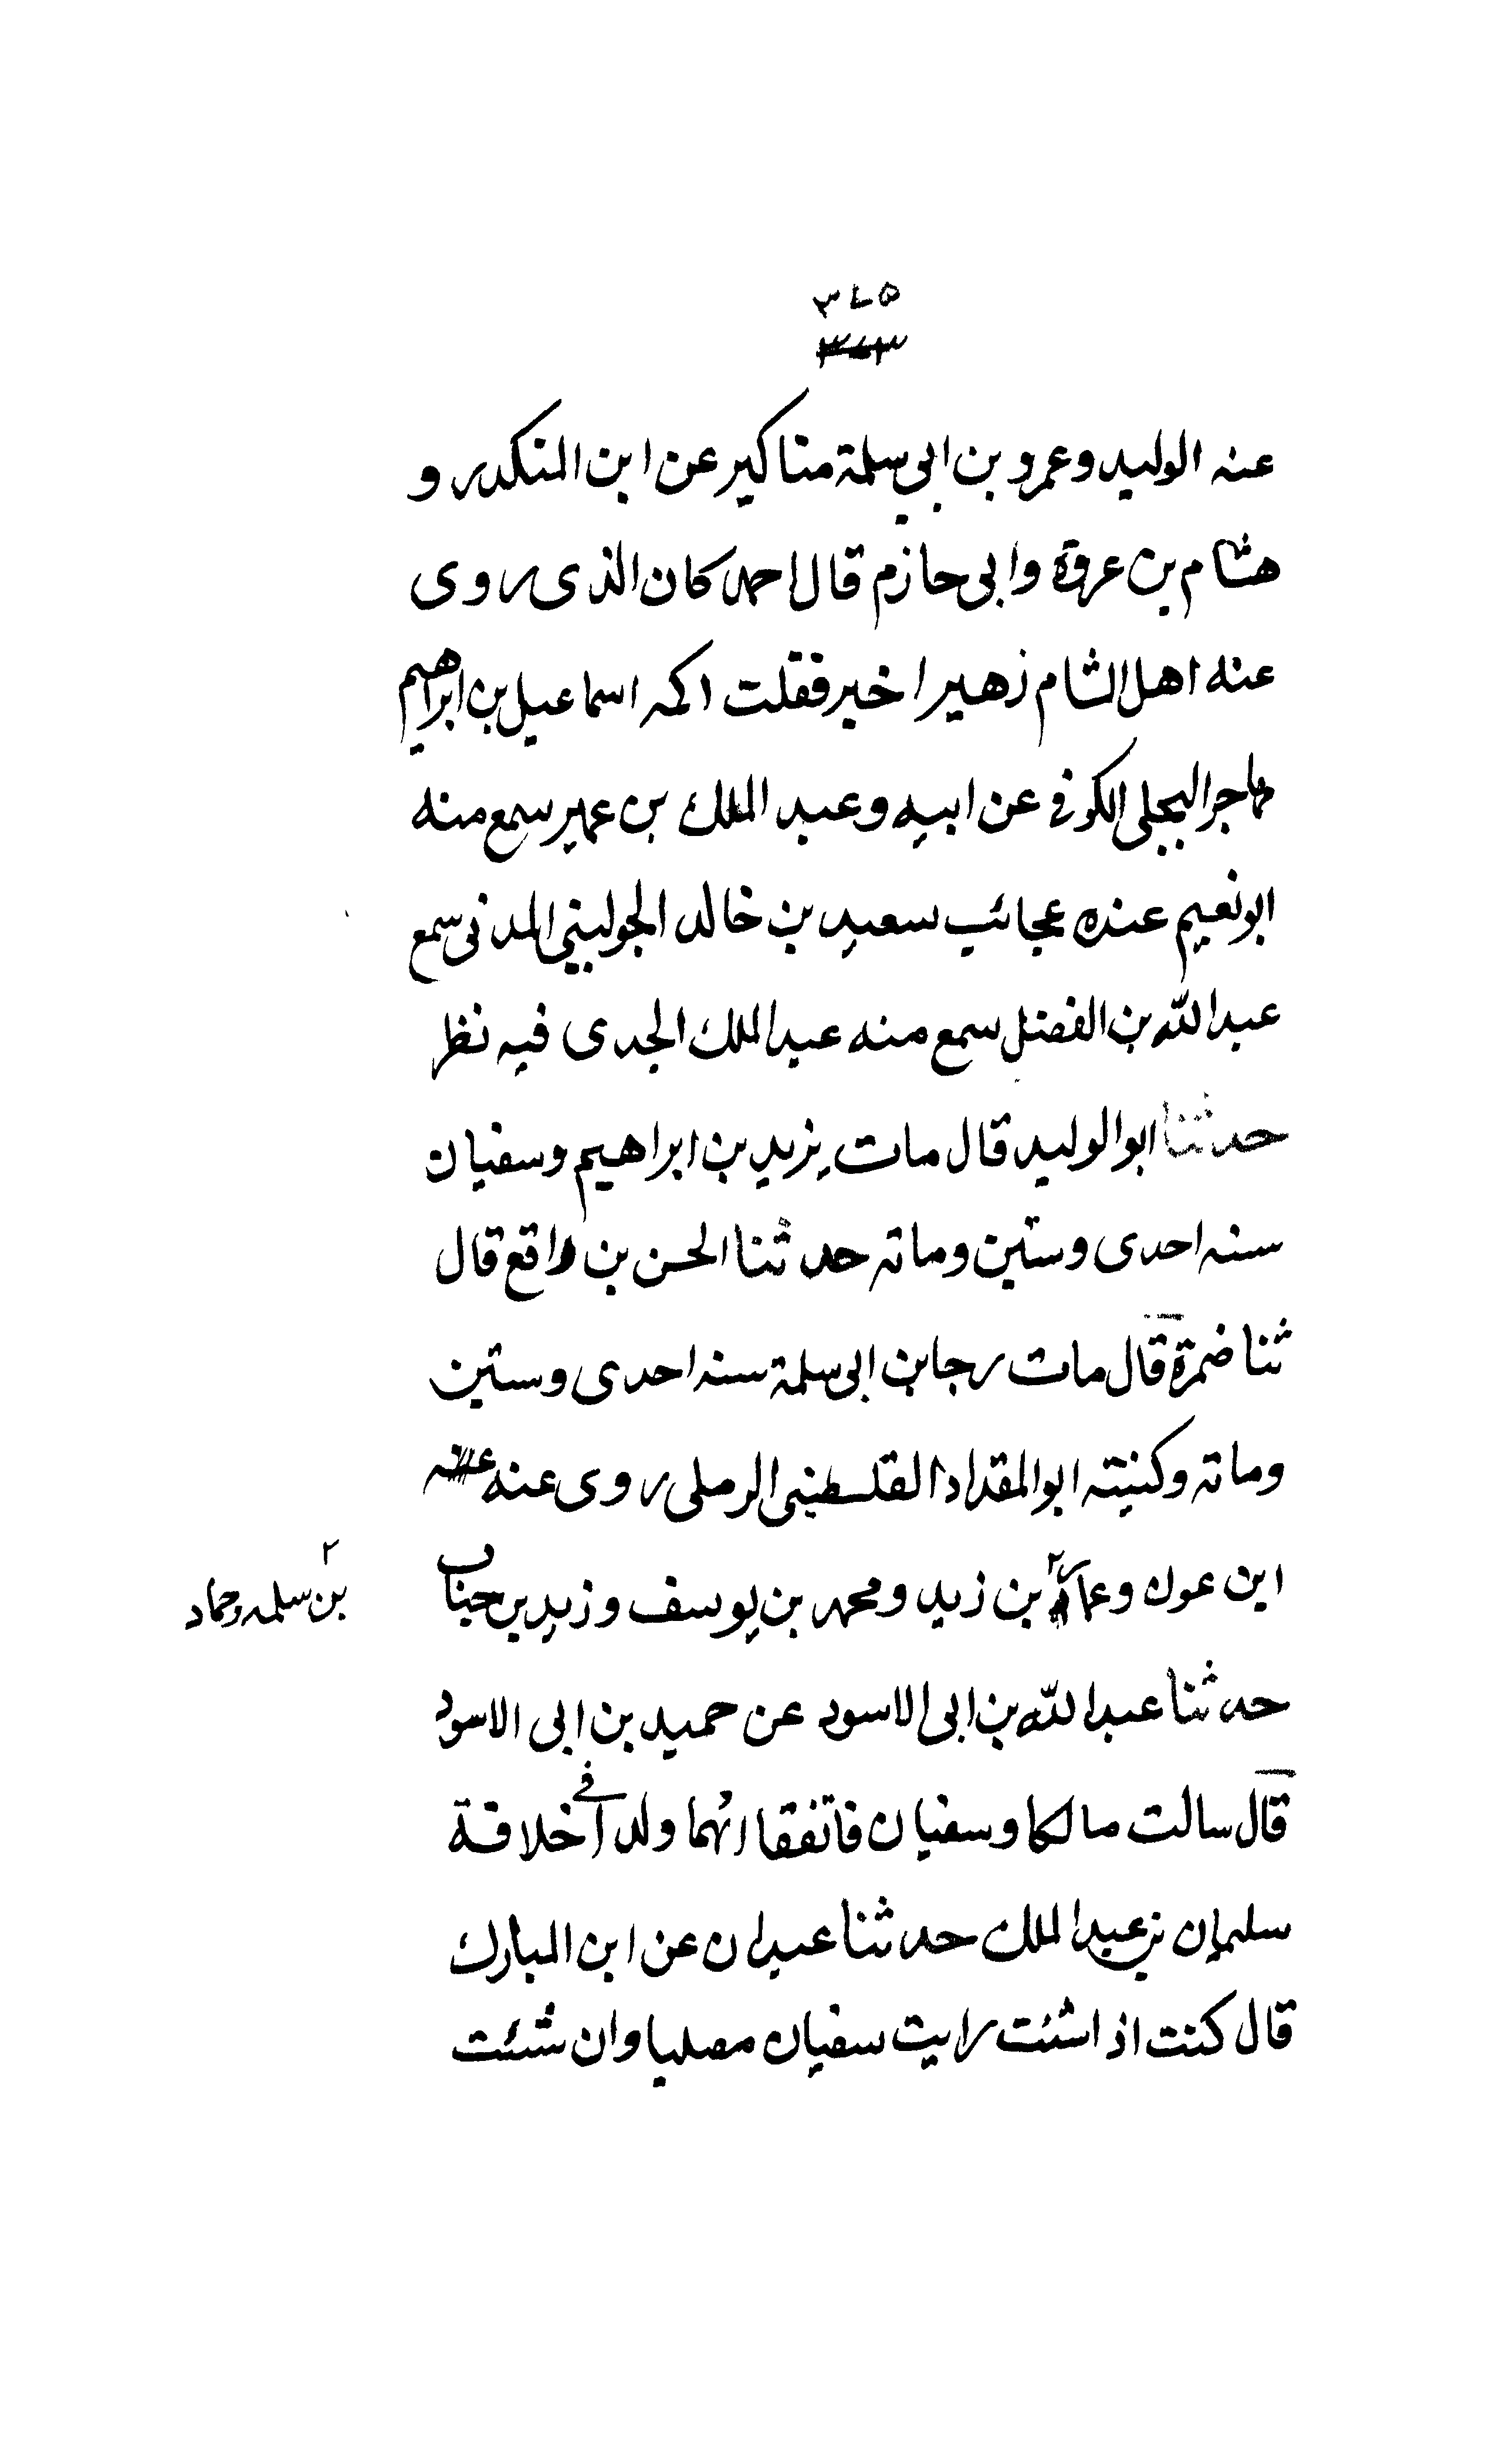 ٣٤٥
عنه الوليد وعمرو بن ابي سلمة مناكير عن ابن المنكدر و
هشام بن عروة وابى حازم قال احمد كان الذى روى
عنه اهل الشام زهيرا خير فقلت اكه اسماعيل بن ابراهيم
مهاجر البجلى الكوفى عن ابيه وعبد الملك بن عمير سمع منه
ابو نعيم عنده عجائب سعيد بن خالد المدنى سمع
عبد الله بن الفضل سمع منه عبد الملك الجدى فيه نظر
حدثنا ابو الوليد قال مات يزيد بن ابراهيم وسفيان
سنه احدى وستين وماته حدثنا الحسن بن واقع قال
ثنا ضمرة قال مات رجا بن ابى سلمة سنه احدى وستين
وماته وكنيته ابو المقداد الفلسطينى الرملى روى عنه
ابن عون وعماد بن زيد ومحمد بن يوسف وزيد بن حباب
بن سلمه وحماد
حدثنا عبد الله بن ابى الاسود عن حميد بن ابى الاسود
قال سالت مالكا وسفيان فاتفقا انهما ولدا فى خلافة
سليمان بن عبد الملك حدثنا عبدان عن ابن المبارك
قال كنت اذا شئت رايت سفيان مصليا وان شئت